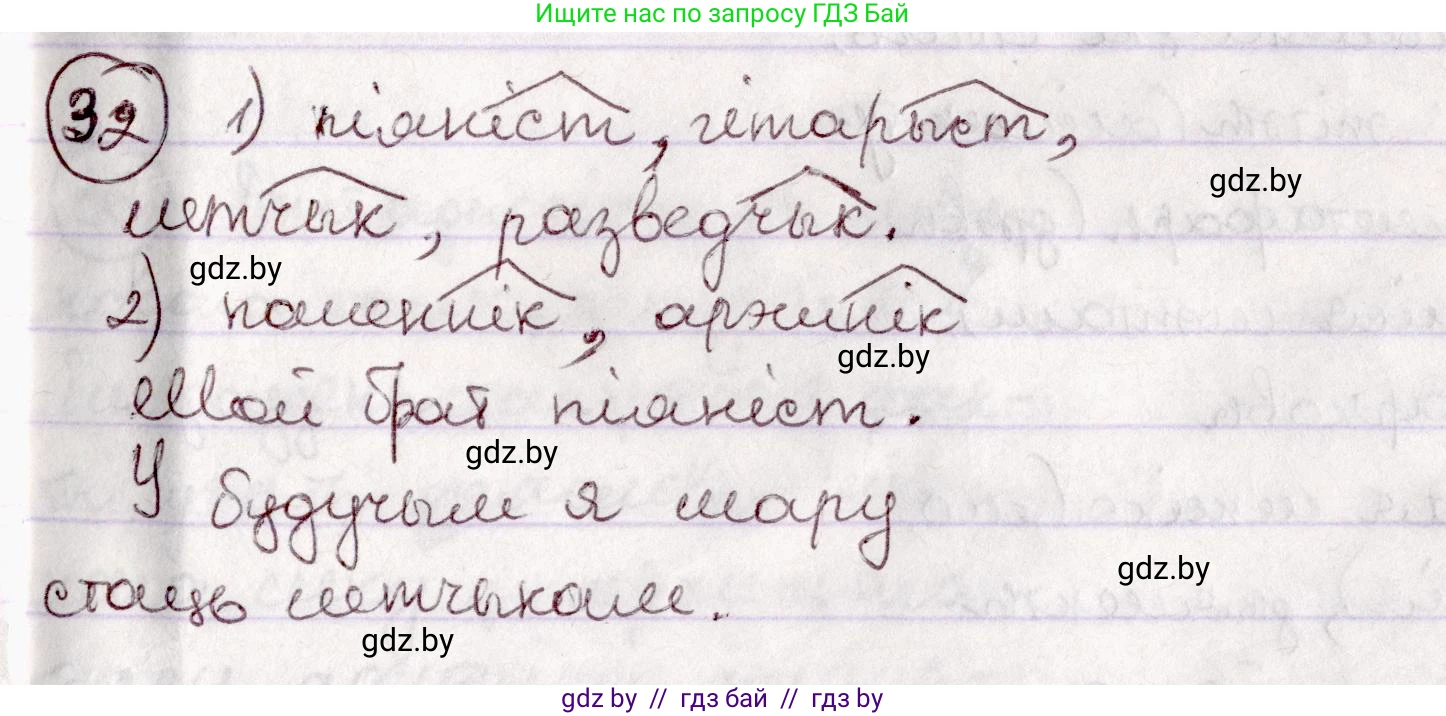 Ищите нас по запросу ГДЗ Бай
32 1) піяніст, гітарыст,
gdz.by
лётчык, разведчык.
gdz.by
2) каменнік, аржннік
gdz.by
Мой брат піяніст.
gdz.by
У будучым я мару
gdz.by
стаць лётчыкам.
gdz.by
gdz by // гдз бай // гдз by